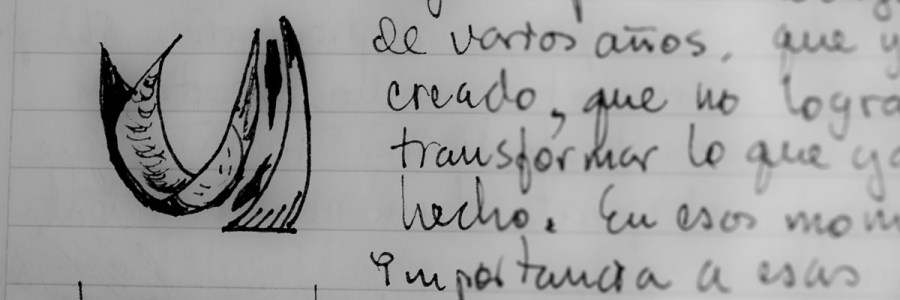 de varios años, que y
creado, que no logra
transformar lo que ya
hecho. En esos mom
importancia a esas